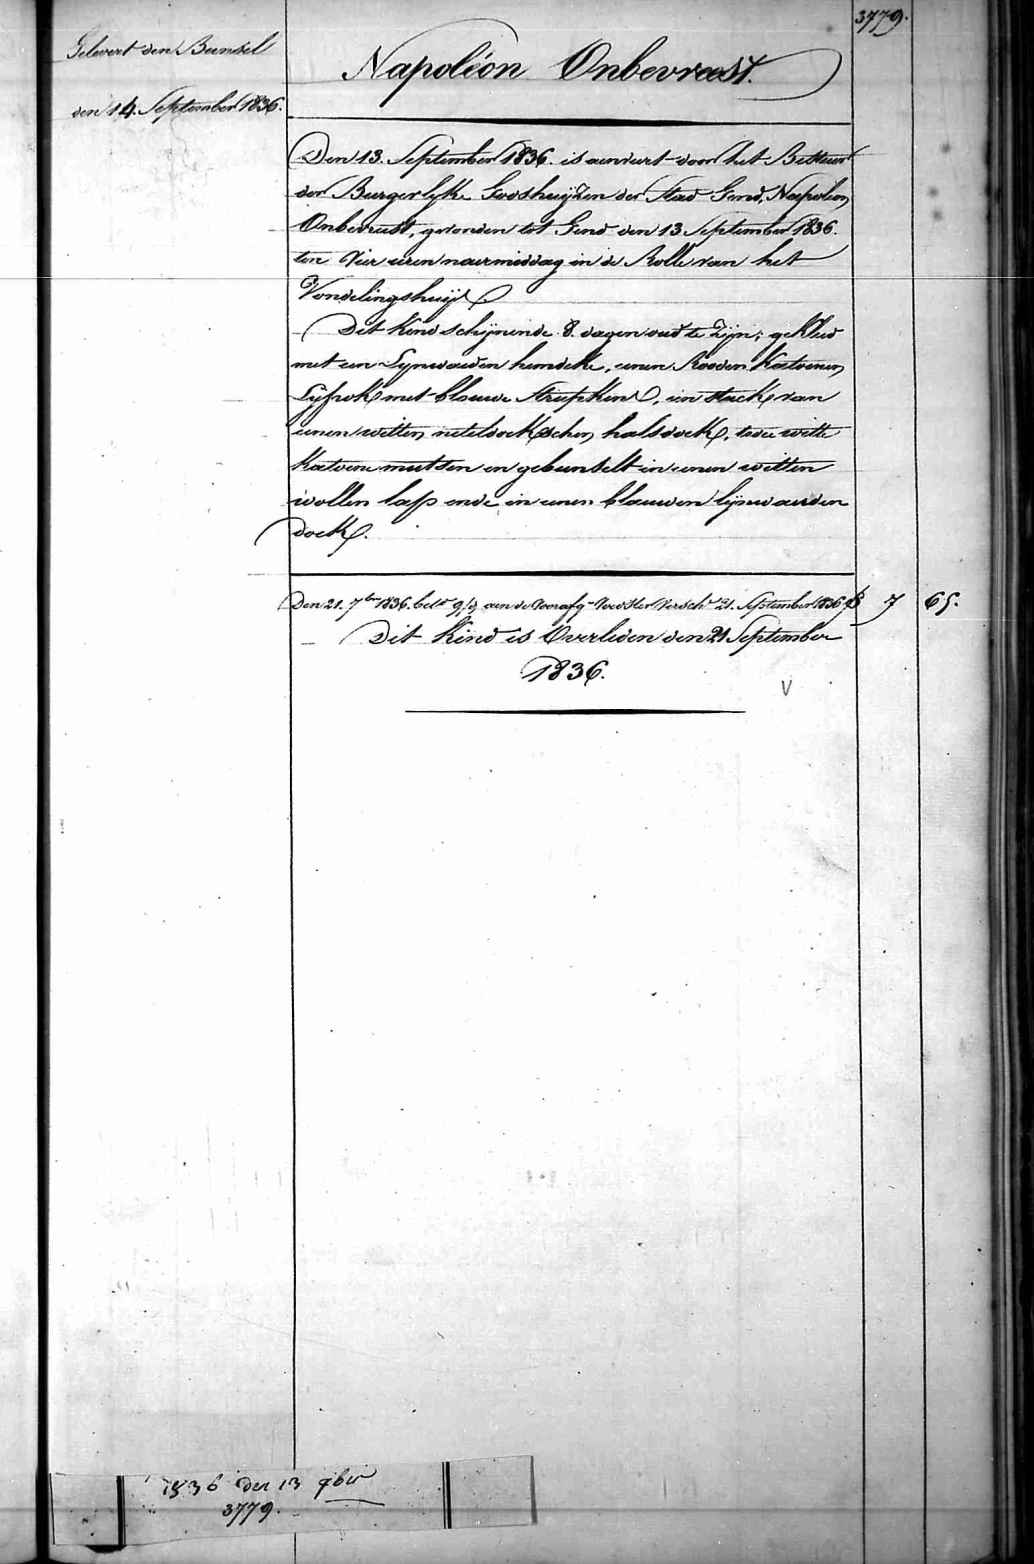 3779.
Gelevert den Bunsel
den 14. September 1836.
Napoléon Onbevreest.
Den 13. September 1836. is aenveert door het Bestuur
der Burgerlyke Godshuijzen der Stad Gend, Napoleon
Onbevreest, gevonden tot Gend den 13 September 1836.
ten Vier uren naermiddag in de Rolle van het
Vondelingshuijs.
Dit Kind schijnende 8. dagen oud te zijn; gekleed
met een Lynwaeden hemdeke, eenen Rooden Katoenen
Lyfrok met blauwe streepkens, een stuck van
eenen witten neteldoekschen halsdoek, twee witte
Katoene mutsen en gebunselt in eenen witten
wollen lap ende in eenen blauwen lijnwaeden
doek.
Den 21. 7ber 1836. beta 9/d aen de Voorafg. Voedster Versch. 21. September 1836 7 65.
Dit Kind is Overleden den 21 September
1836.
V
1836 den 13 7ber
3779.